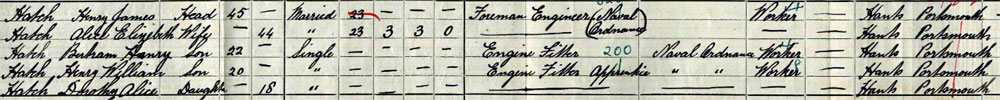 Hatch Henry James Head 45 — Married 23 — — — Foreman Engineer (Naval Ordnance) Worker — Hants Portsmouth
Hatch Alice Elizabeth Wife — 44 " 23 3 3 0 — — Hants Portsmouth
Hatch Bertram Henry Son 22 — Single — — — — Engine Fitter 200 Naval Ordnance Worker — Hants Portsmouth
Hatch Henry William Son 20 — " — — — — Engine Fitter Apprentice " " Worker — Hants Portsmouth
Hatch Dorothy Alice Daughter — 18 " — — — — — — Hants Portsmouth